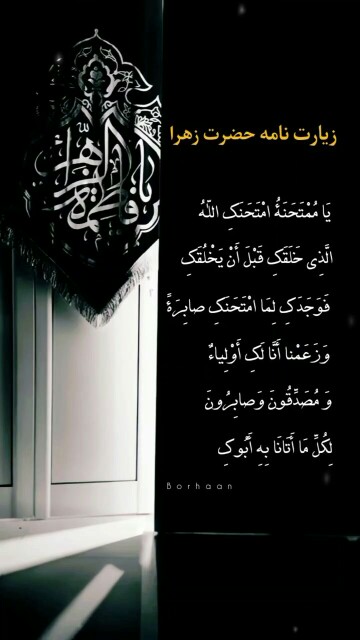 زیارت نامه حضرت زهرا
یَا مُمْتَحَنَةُ امْتَحَنَکِ اللّٰهُ
الَّذِی خَلَقَکِ قَبْلَ أَنْ یَخْلُقَکِ
فَوَجَدَکِ لِمَا امْتَحَنَکِ صابِرَةً
وَزَعَمْنا أَنَّا لَکِ أَوْلِیاءٌ
وَ مُصَدِّقُونَ وَصابِرُونَ
لِکُلِّ مَا أَتَانَا بِهِ أَبُوکِ
Borhaan
یا فاطمة الزهراء